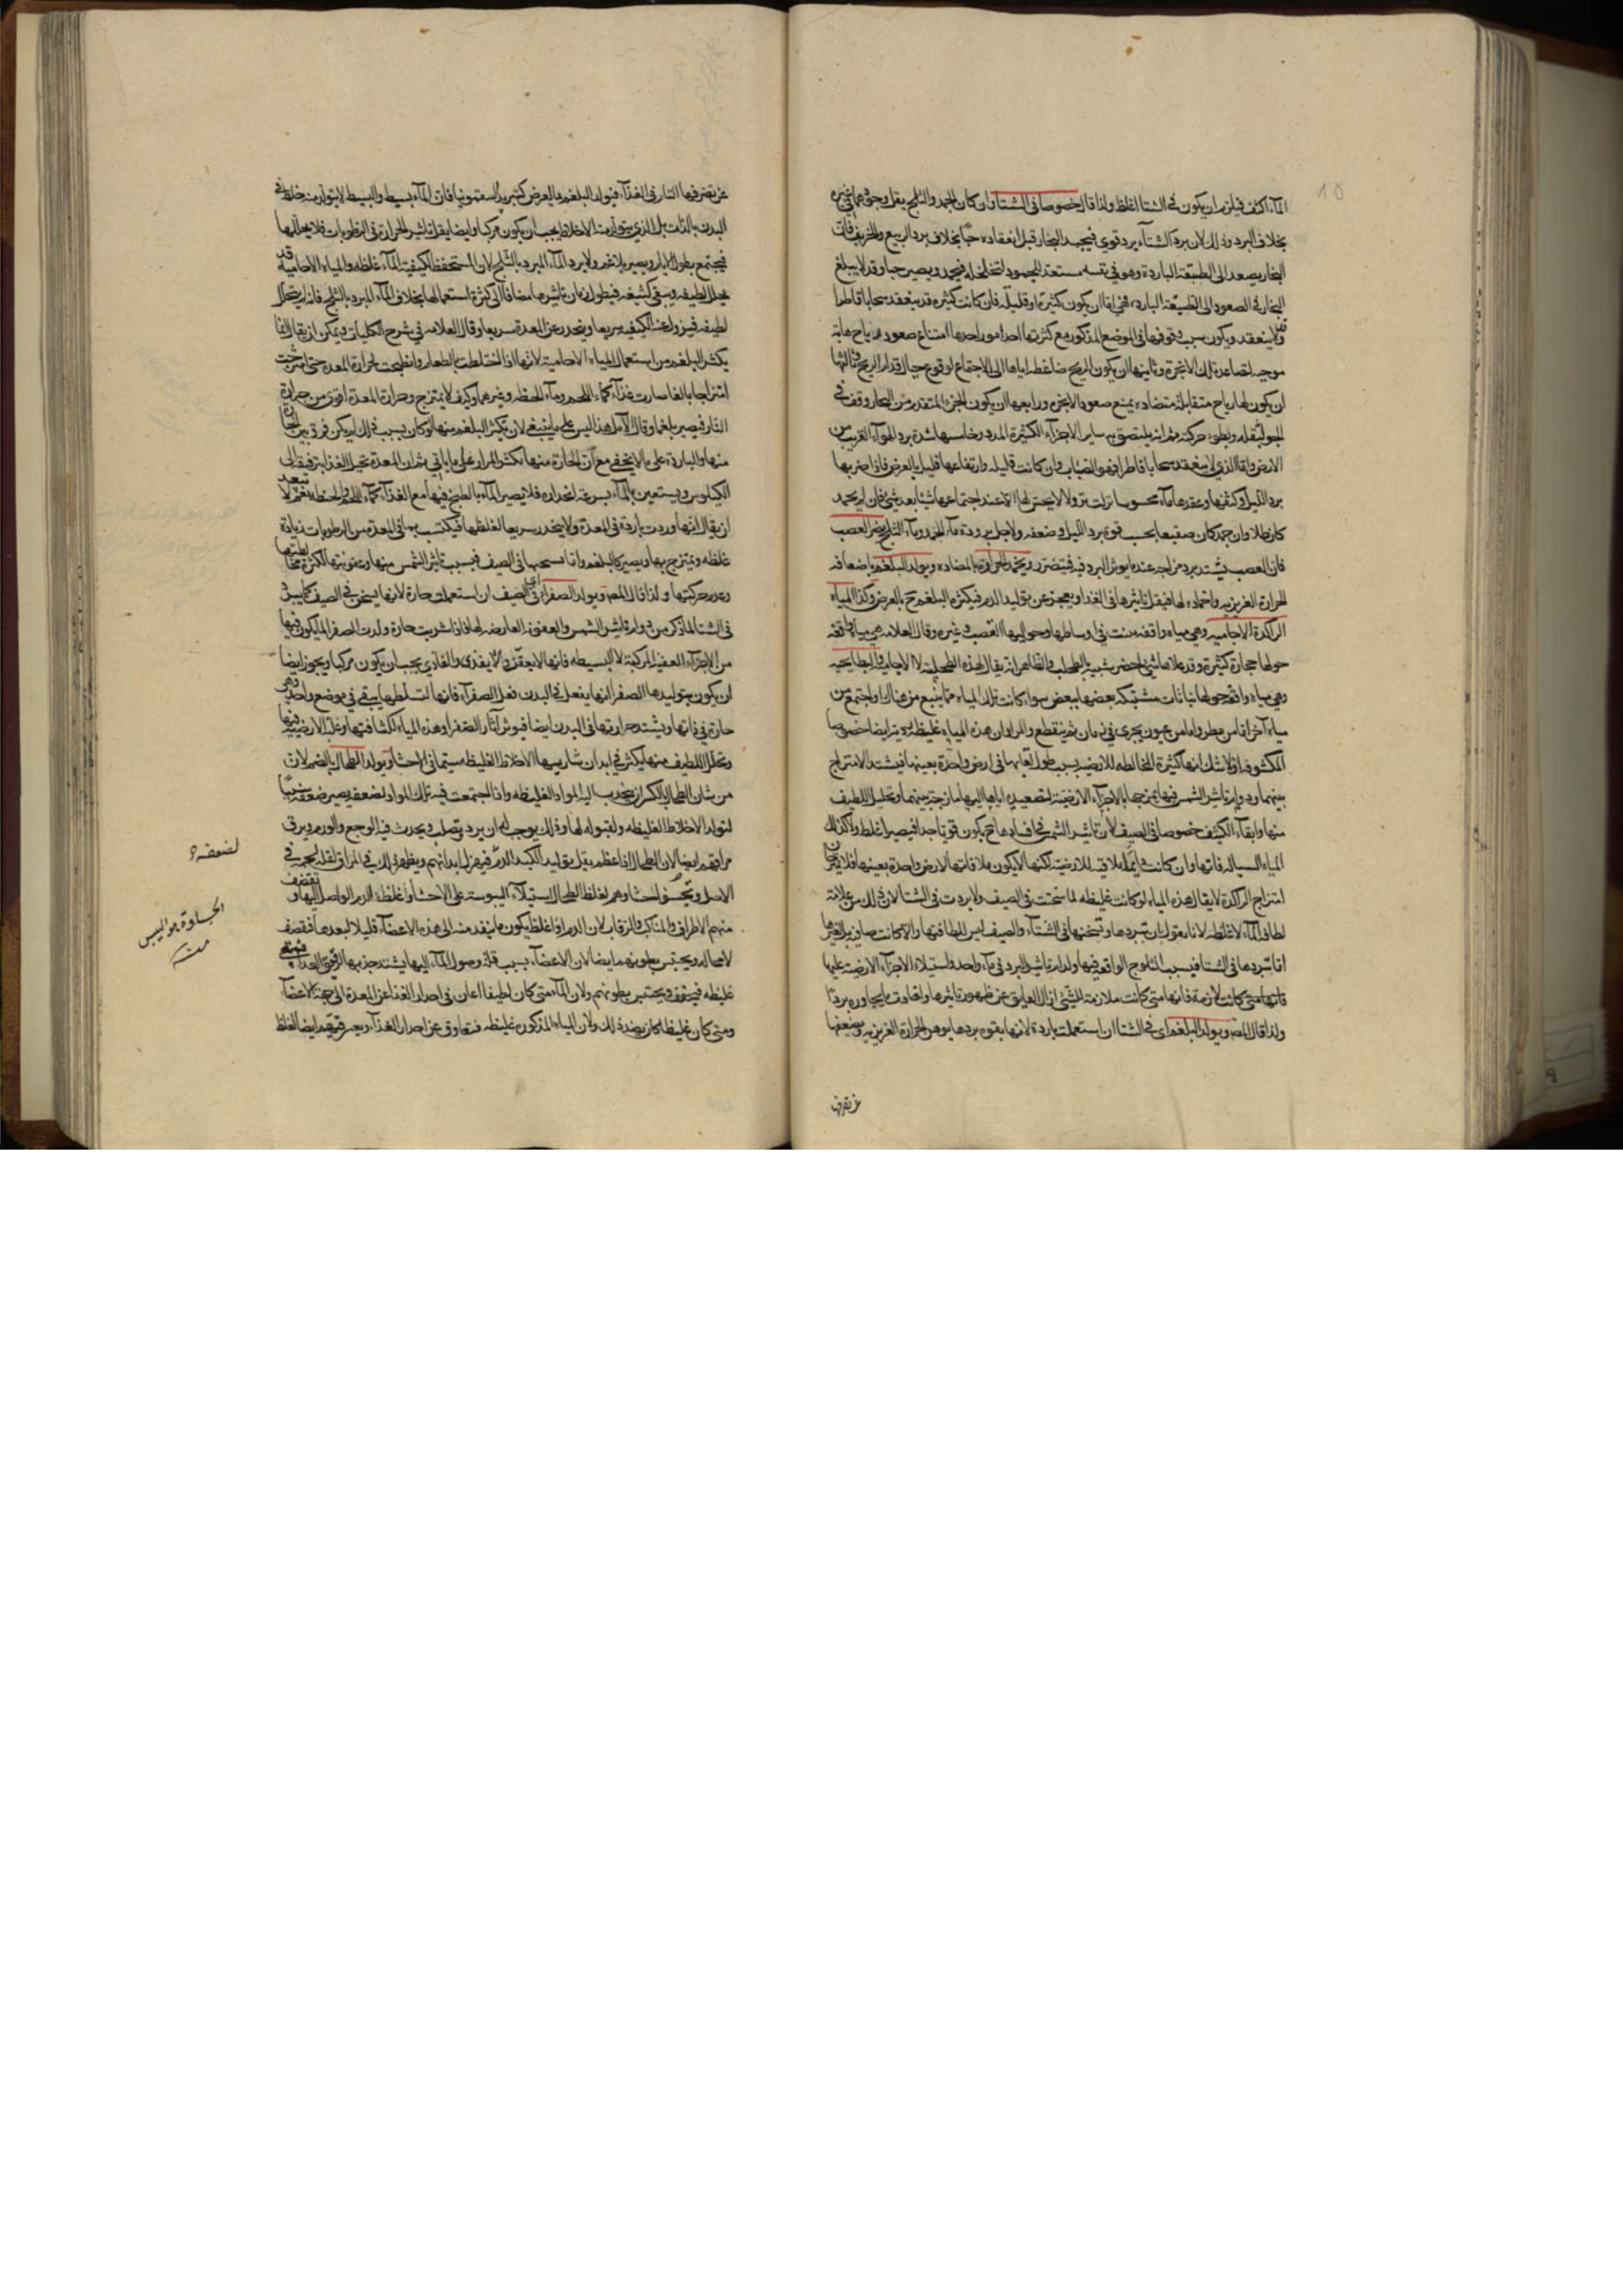 الماء اكثف فيلزم ان يكون في الشتا اغلظ ولذا قال خصوصا في الشتا وان كان الجمد والثلج يقل وجوه في غيره
بخلاف البرد وذلك لان برد الشتاء برد قوي فيجمد البخار قبل انعقاده حبا بخلاف برد الربيع والخريف فان
البخار يصعد الى الطبقة الباردة وهو في نفسه مستعد للجمود لتخلخله فيجمد ويصير حبا وقد لا يبلغ
البخار في الصعود الى الطبقة الباردة فحينئذ اما ان يكون كثيرة او قليلة فان كانت كثيرة قد ينعقد سحابا قاطرا
وقد لا ينعقد ويكون سبب وقوفها في الموضع المذكور مع كثرتها احد امور احدها امتناع صعود هبوب رياح مانعة
موجبه لتصاعد تلك الابخرة وثانيها ان يكون الريح ضاغطه اياها الى الاجتماع لوقوع جبال قدام الريح وثالثها
ان يكون لها رياح متقابلة متضادة يمنع صعود الابخره ورابعها ان يكون الجزء المتقدم من البخار وقف في
الجو لثقله وبطوء حركته ثم انه يلتصق به ساير الاجزاء الكثيرة المدد وخامسها شدة برد الهواء القريب من
الارض واما الذي لا ينعقد سحابا قاطرا فهو الضباب وان كانت قليلة وارتفاعها قليل بالعرض فاذا ضربها
برد الليل وكثفها وعقدها ماء محسوسا نزلت نزولا لا يحس لها الا عند اجتماعها شيئا بعد شيء فان لم يجمد
كان طلا وان جمد كان صقيعا بحسب قوة برد الليل وضعفه ولاجل برودة ماء الجمد وماء الثلج يضر العصب
فان العصب يشتد برد مزاجه عندما يوثر البرد فيه فيتضرر ويخمد الحرارة بالمضاده ويولد البلغم باضعافه
للحرارة الغريزيه واخماده لها فيقل تاثيرها في الغذا ويعجز عن توليد الدم فيكثر البلغم ح بالعرض وكذا المياه
الراكدة الاجامية وهي مياه واقفه ينبت في اوساطها وحواليها القصب وغيره وقال العلامه هي مياه واقفه
حولها حجارة كثيرة وقد علاها شي اخضر شبيه بالطحلب والظاهر انه يقال لهذه الطحلبية لا الاجامية والبطايحيه
وهي مياه واقفة حولها نباتات مشتبكه بعضها ببعض سواء كانت تلك المياه مما ينبع من هناك او اجتمع من
مياه اخر اما من مطر واما من عيون يجري في زمان ثم ينقطع والمراد ان هذه المياه غليظه رديئه ايضا خصوصا
المكشوفة ولا شك انها كثيرة المخالطه للارضيه بسبب طول لقايها في ارض واحدة بعينها فيشتد الامتزاج
بينهما ودوام تاثير الشمس فيها بمزجها بالاجزاء الارضية لتصعيده اياها اليها مازجة بينهما وتحليل اللطيف
منها وابقاء الكثيف خصوصا في الصيف لان تاثير الشمس في افسادها ح يكون قويا جدا فيصير اغلظ ولا كذلك
المياه السيالة فانها وان كانت دايما ملاقيه للارضية لكنها لا يكون ملاقاتها لارض واحدة بعينها فلا يمتزج
امتزاج الراكدة لا يقال هذه المياه لو كانت غليظه لما سخنت في الصيف ولا بردت في الشتا لان ذلك من علامة
لطافة الماء لا غلظه لانا نقول ان تبردها وتسخنها في الشتاء والصيف ليس للطافتها والا كانت صافية بل لغيرها
اما تبردها في الشتا فبسبب الثلوج الواقعه فيها ولدوام تاثير البرد في ماء واحد واستيلاء الاجزاء الارضية عليها
فانها متى كانت لازمة فانها متى كانت ملازمة للشيء ازال العايق عن ظهور تاثيرها وافادت ما يجاوره بردا
ولذا قال المصنف ويولد البلغم اي في الشتا ان استعملت باردة لانها بقوة بردها يوهن الحرارة الغريزيه ويضعفها
عن تصرفها
عن تصرفها التار في الغذاء فيولد البلغم بالعرض كتبريد السقمونيا فان الماء بسيط والبسيط لا يتولد منه خلط في
البدن بالذات بل الذي يتولد منه الاخلاط يجب ان يكون مركبا وايضا يقل تاثير الحرارة في الرطوبات فلا يحللها
فيجتمع بطول الايام ويصير بلاغم ولا يرد الماء المبرد بالثلج لان المستحفظ لكيفية الماء غلظه والمياه الاجامية قد
يحلل لطيفه ويبقى كثيفه فيطول زمان تاثيرها مضافا الى كثرة استعمالها بخلاف الماء المبرد بالثلج فانه لم يتحلل
لطيفه فيزول عنه الكيفيه سريعا وينحدر عن المعدة سريعا وقال العلامه في شرح الكليات ويمكن ان يقال انما
يكثر البلغم من استعمال المياه الاجامية لانها اذا اختلطت بالطعام وانطبخت لحرارة المعده حتى امتزجت
امتزاجا بالغا صارت غذاء كماء اللحم وماء الحنطه وغيرهما وكيف لا يمتزج وحرارة المعدة اقوى من حرارة
النار فيصير بلغما وقال الآملي هذا ليس على ما ينبغي لان تكثر البلغم منها لو كان بسبب ذلك لم يكن فرق بين الحارة
منها والباردة على ما لا يخفى مع ان الحارة منها تكثر المرار على ما ياتي ثم ان المعدة تحيل الغذا برفيقه الى
الكيلوس ويستعين بالماء بسرعة انحداره فلا يصير الماء بالطبخ فيها مع الغذاء كماء اللحم والحنطه نعم لا يبعد
ان يقال انها وردت باردة في المعدة ولا ينحدر سريعا لغلظها فيكتسب بها في المعدة من الرطوبات زيادة
غلظه ويمتزج بها ويصير كالبلغم واما تسخنها في الصيف فبسبب تاثير الشمس فيها وعفونتها لكثرة مخالطتها
وعدم حركتها ولذا قال المصنف ويولد الصفراء اي في الصيف ان استعملت حارة لانها يسخن في الصيف كما يبرد
في الشتا لما ذكر من دوام تاثير الشمس والعفونه العارضه لها فاذا شربت حارة ولدت الصفرا لما يكون فيها
من الاجزاء العفنة المركبة لا البسيطه فانها لا يتعفن ولا يغذي والغاذي يجب ان يكون مركبا ويجوز ايضا
ان يكون بتوليدها الصفرا انها يفعل في البدن فعل الصفراء فانها لتسلطها يبقى في موضع واحد وهي
حارة في ذاتها ويشتد حرارتها في البدن ايضا فيوثر اثار الصفرا وهذه المياه لكثافتها وغلبة الارضية فيها
وتحلل اللطيف منها يكثر في ابدان شاربيها الاخلاط الغليظه سيما في الاحشا ويولد الطحال بالضم لان
من شان الطحال بالكسر ان ينجذب اليه المواد الغليظه واذا اجتمعت فيه تلك المواد لضعفه يصير ضعفه سببا
لتولد الاخلاط الغليظه ولقبوله لها وذلك يوجب له ان يرد ويصلب ويحدث فيه الوجع والورم ويرق
مراقهم ايضا لان الطحال اذا عظم يقل توليد الكبد الدم فيهزل ابدانهم ويظهر ذلك في المراق لقلة لحمه في
الاصل ويجسو احشاوهم لغلظ الطحال لاستيلاء اليبوسة على الاحشا ولغلظ الدم الواصل اليها ويقضف
منهم الاطراف والمناكب والرقاب لان الدم اذا غلظ يكون ما ينفذ منه الى هذه الاعضاء قليلا لبعدها فيقضف
لا محاله ويحتبس بطونهم ايضا لان الاعضاء بسبب قلة وصول الماء اليها يشتد جذبها لرقيق الغذاء فيبقى
غليظه فيجف ويحتبس بطونهم ولان الماء متى كان لطيفا اعان في احدار الغذا عن المعدة الى جهة الاعضاء
ومتى كان غليظا كان بضد ذلك ولان المياه المذكوره غليظه فيتعاوق عن احدار الغذاء ويعسر قيهم ايضا لغلظ
لضعفه
الجساوة هو اليبس
منه